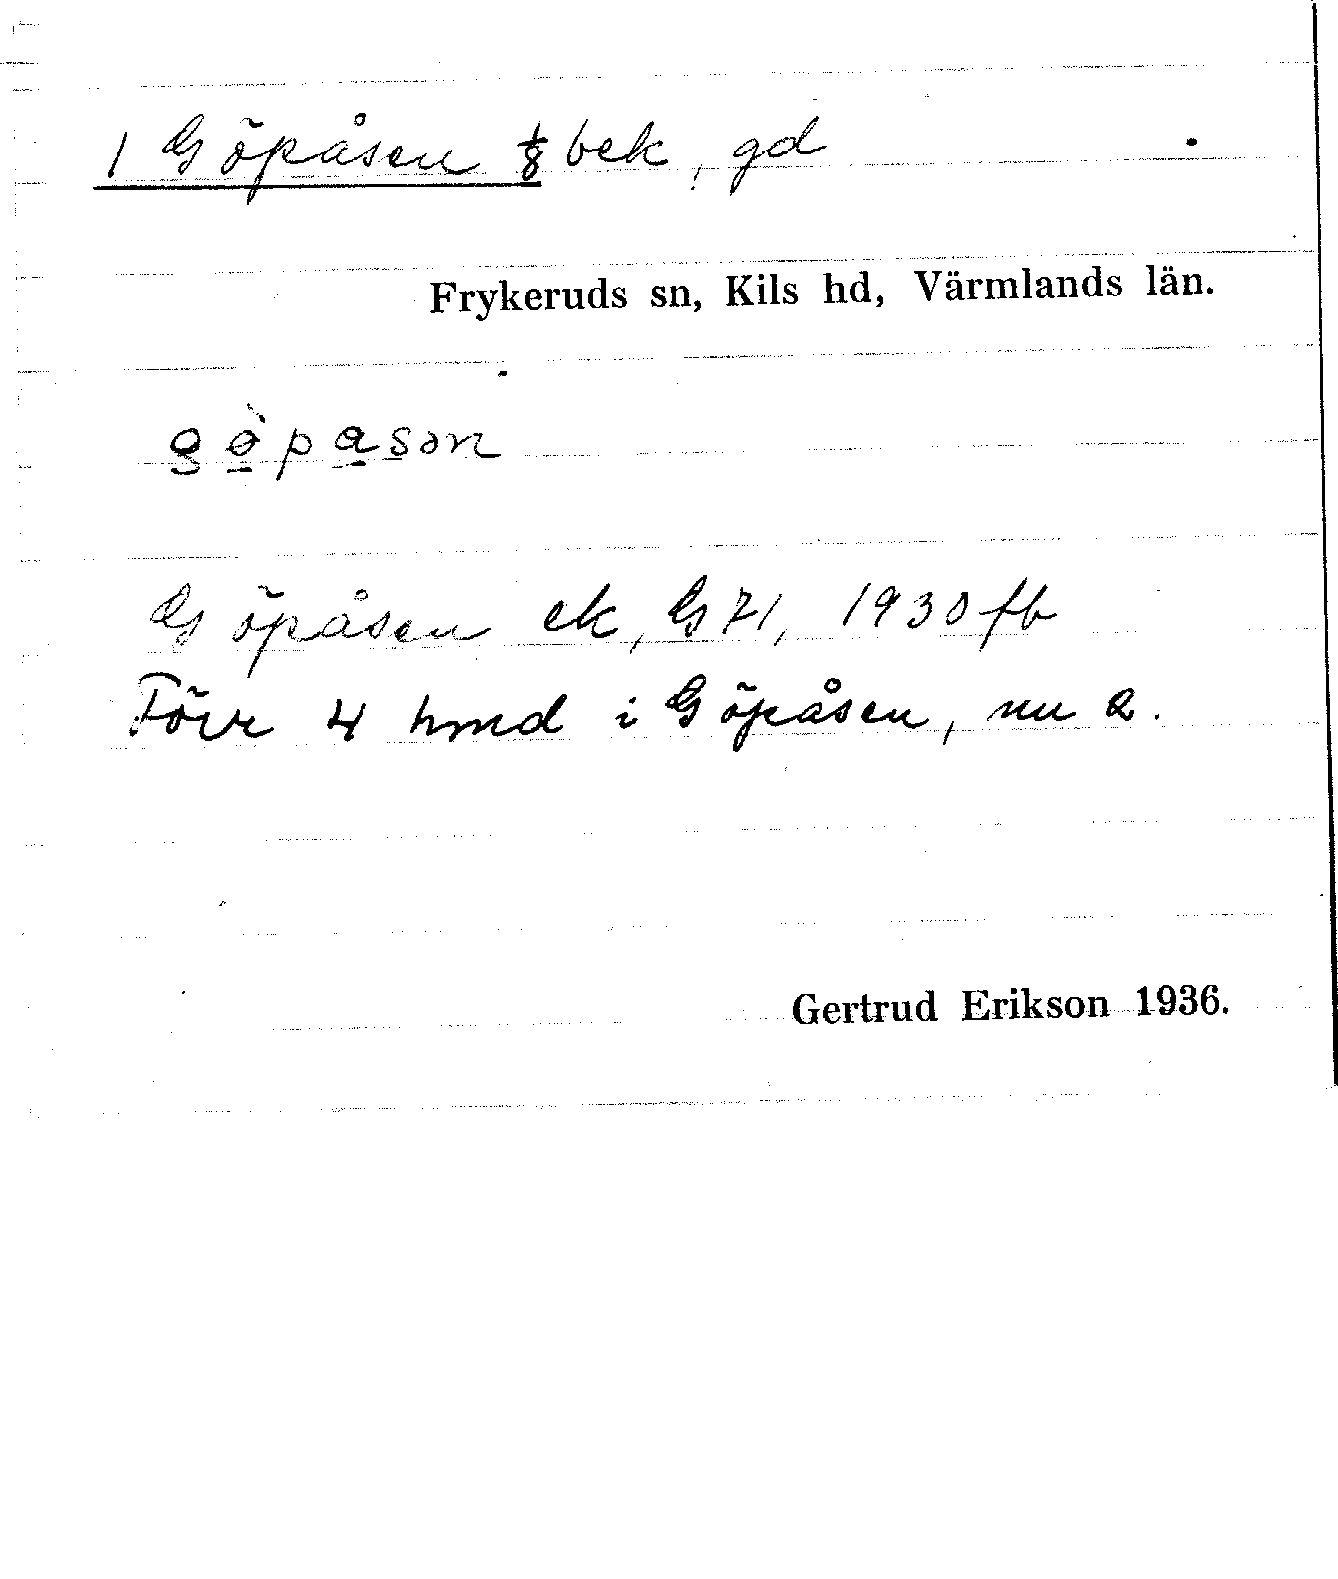 1 Göpåsen 1/8 bek, gd
Frykeruds sn, Kils hd, Värmlands län.
göpasən
Göpåsen ek, G71, 1930 fb
Förr 4 hmd i Göpåsen, nu 2.
Gertrud Erikson 1936.